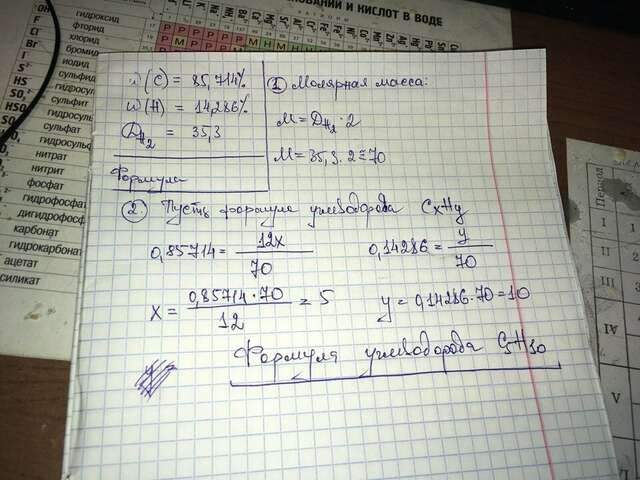 И КИСЛОТ В ВОДЕ
OH⁻ гидроксид
F⁻ фторид
Cl⁻ хлорид
Br⁻ бромид
I⁻ иодид
S²⁻ сульфид
HS⁻ гидросуль
SO₃ сульфит
HSO гидросульф
SO₄ сульфат
гидросульф
нитрат
нитрит
фосфат
гидрофосфат
дигидрофосф
карбонат
гидрокарбонат
ацетат
силикат
ω(C) = 85,714%
ω(H) = 14,286%
D H₂ = 35,3
Формула
① Молярная масса:
M = D H₂ · 2
M = 35,3 · 2 ≈ 70
② Пусть формула углеводорода CxHy
0,85714 = 12x / 70
0,14286 = y / 70
x = 0,85714 · 70 / 12 = 5
y = 0,14286 · 70 = 10
Формула углеводорода C5H10
Период
I
II
III
IV
V